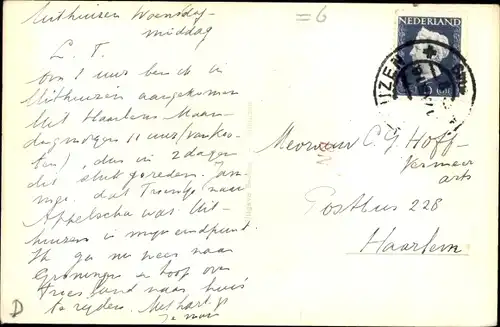 Uithuizen Woensdag-
middag
= 6
L. T.
Om 1 uur ben ik in
Uithuizen aangekomen
Uit Haarlem Maan-
dagmorgen 11 uur
ten), dus in 2 dagen
dat stuk gereden.
dat Treesje naar
Appelscha was. Uit-
huizen is mijn eindpunt.
Ik ga nu weer naar
Groningen en hoop over
Friesland naar huis
te rijden. Met hart. gr.
Je man
D
NEDERLAND
IZEN
Mevrouw C. G Hoff-
Vermeer
arts
Postbus 228
Haarlem